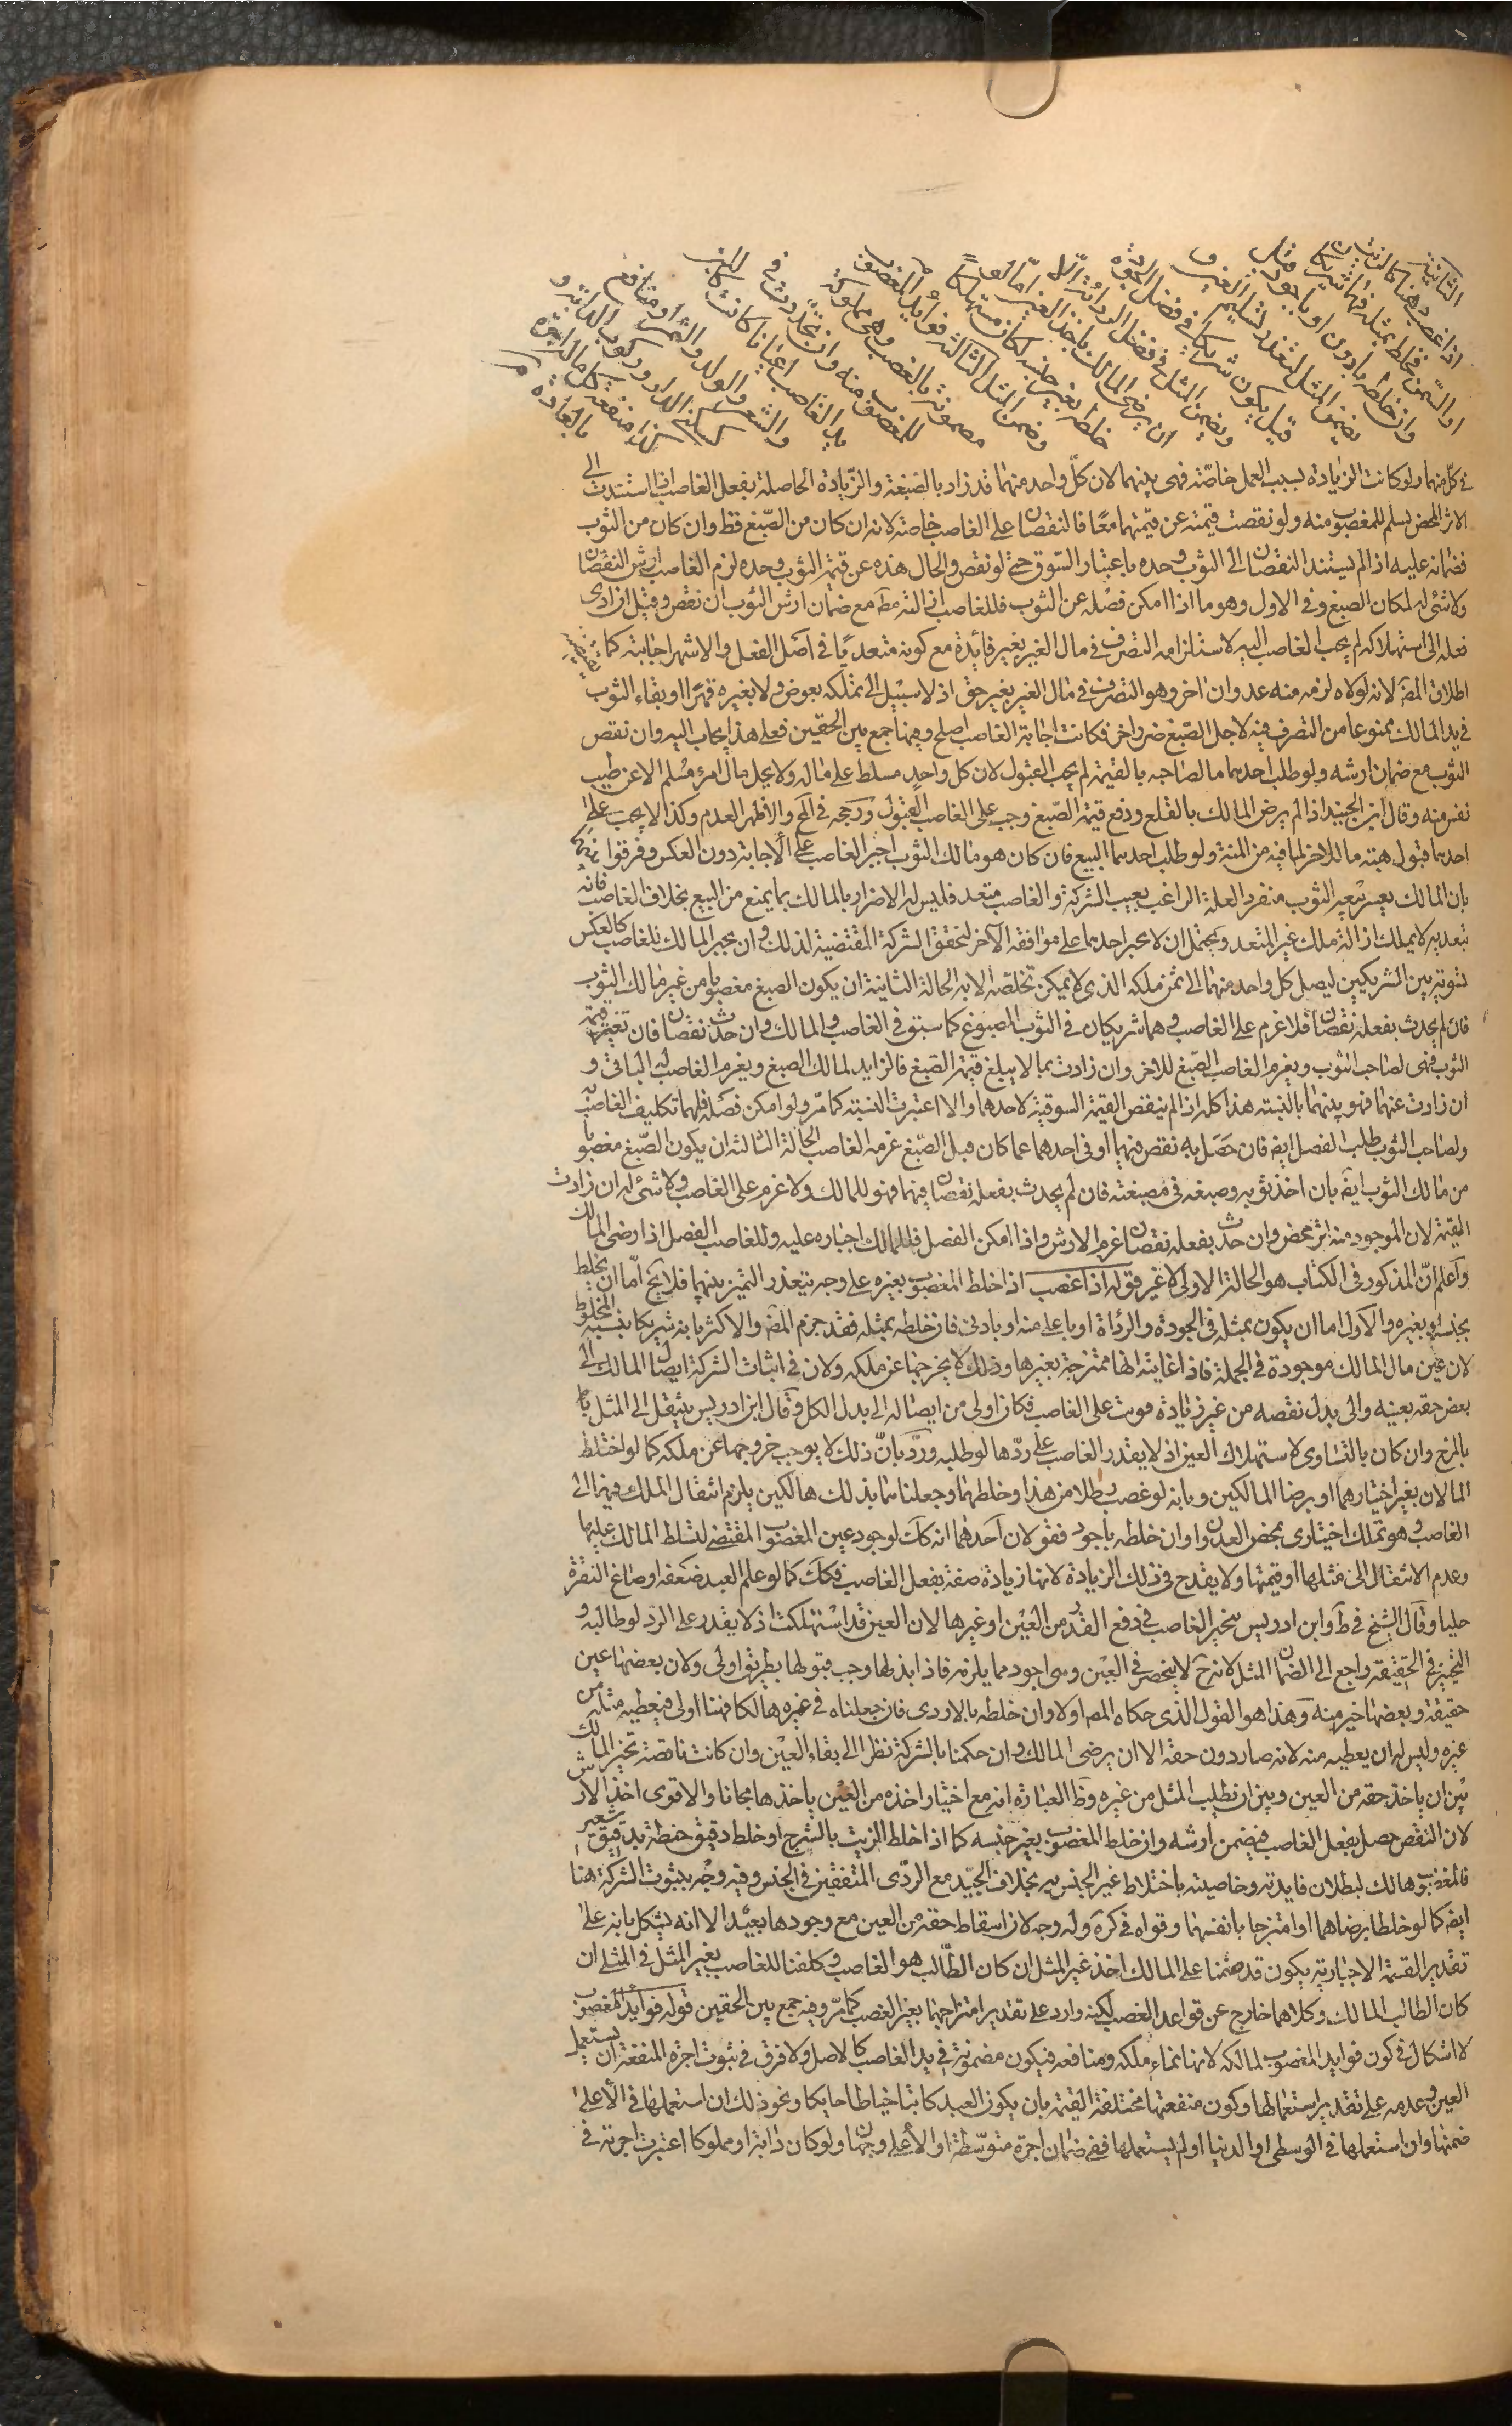 الثانية
اذا غصب دهنا كالزيت
او السمن فخلطه بمثله فهما شريكان
وان خلطه بادون او باجود قيل
يضمن المثل لتعذر تسليم العين و
قيل يكون شريكا في فضل الجودة
ويضمن المثل في فضل الرداءة الا
ان يرضى المالك باخذ العين اما لو
خلطه بغير جنسه لكان مستهلكا
وضمن المثل الثالثة فوائد المغصوب
مضمونة بالغصب وهي مملوكة
للمغصوب منه وان تجددت في
يد الغاصب اعيانا كانت كاللبن
والشعر والولد والثمر او منافع
كسكنى الدار وركوب الدابة و
كذا منفعة كل ما له اجرة
بالعادة
في كل منهما ولو كانت الزيادة بسبب العمل خاصة فهي بينهما لان كل واحد منهما قد زاد بالصبغة والزيادة الحاصلة بفعل الغاصب اذا استندت الى
الاثر المحض يسلم للمغصوب منه ولو نقصت قيمته عن قيمتهما معا فالنقصان على الغاصب خاصة لانه ان كان من الصبغ فظ وان كان من الثوب
فضمانه عليه اذا لم يستند النقصان الى الثوب وحده باعتبار السوق حتى لو نقص والحال هذه عن قيمة الثوب وحده لزم الغاصب ارش النقصان
ولا شئ له لمكان الصبغ وفي الاول وهو ما اذا امكن فصله عن الثوب فللغاصب ازالته مط مع ضمان ارش الثوب ان نقص وقيل ان ادى
فعله الى استهلاكه لم يجب الغاصب اليه لاستلزامه التصرف في مال الغير بغير فائدة مع كونه متعديا في اصل الفعل والاشهر اجابته كما يقتضيه
اطلاق المص لانه لولاه لزمه منه عدوان اخر وهو التصرف في مال الغير بغير حق اذ لا سبيل الى تملكه بعوض ولا بغيره قهرا او بقاء الثوب
في يد المالك ممنوعا من التصرف فيه لاجل الصبغ ضرر اخر فكانت اجابة الغاصب اصلح وفيها جمع بين الحقين فعلى هذا يجاب اليه وان نقص
الثوب مع ضمان ارشه ولو طلب احدهما ما لصاحبه بالقيمة لم يجب القبول لان كل واحد مسلط على ماله ولا يحل مال امرئ مسلم الا عن طيب
نفس منه وقال ابن الجنيد اذا لم يرض المالك بالقلع ودفع قيمة الصبغ وجب على الغاصب القبول ورجحه في لف والاظهر العدم وكذا لا يجب على
احدهما قبول هبة ما للاخر لما فيه من المنة ولو طلب احدهما البيع فان كان هو مالك الثوب اجبر الغاصب على الاجابة دون العكس وفرقوا بينهما
بان المالك يعسر بيعه الثوب منفردا لقلة الراغب بعيب الشركة والغاصب متعد فليس له الاضرار بالمالك بما يمنع من البيع بخلاف الغاصب فانه
بتعديه لا يملك ازالة ملك غير المتعد ويحتمل ان لا يجبر احدهما على موافقة الآخر لتحقق الشركة المقتضية لذلك وان يجبر المالك للغاصب كالعكس
تسوية بين الشريكين ليصل كل واحد منهما الى ثمن ملكه الذي لا يمكن تخلصه الا به الحالة الثانية ان يكون الصبغ مغصوبا من غير مالك الثوب
فان لم يحدث بفعله نقصان فلا غرم على الغاصب وهما شريكان في الثوب المصبوغ كما سبق في الغاصب والمالك وان حدث نقصان فان بقيت قيمة
الثوب فهي لصاحب الثوب ويغرم الغاصب الصبغ للاخر وان زادت بما لا يبلغ قيمة الصبغ فالزايد لمالك الصبغ ويغرم الغاصب له الباقي و
ان زادت عنهما فهو بينهما بالنسبة هذا كله اذا لم ينقص القيمة السوقية لاحدهما والا اعتبرت النسبة كما مر ولو امكن فصله فلهما تكليف الغاصب به
ولصاحب الثوب طلب الفصل ايض فان حصل به نقص فيهما او في احدهما عما كان قبل الصبغ غرمه الغاصب الحالة الثالثة ان يكون الصبغ مغصوبا
من مالك الثوب ايض بان اخذ ثوبه وصبغه في مصبغته فان لم يحدث بفعله نقصان فيهما فهو للمالك ولا غرم على الغاصب ولا شئ له ان زادت
القيمة لان الموجود منه اثر محض وان حدث بفعله نقصان غرم الارش واذا امكن الفصل فللمالك اجباره عليه وللغاصب الفصل اذا رضي المالك
واعلم ان المذكور في الكتاب هو الحالة الاولى لا غير قوله اذا غصب اذا خلط المغصوب بغيره على وجه يتعذر التميز بينهما فلا يخ اما ان يخلط
بجنسه او بغيره والاول اما ان يكون بمثله في الجودة والرداءة او باعلى منه او بادنى فان خلطه بمثله فقد جزم المص والاكثر بانه شريكا بنسبة المخلوط
لان عين مال المالك موجودة في الجملة فاذا غايته انها ممتزجة بغيرها وذلك لا يخرجها عن ملكه ولان في اثبات الشركة ايصال المالك الى
بعض حقه بعينه والى بدل نقصه من غير زيادة فوت على الغاصب فكان اولى من ايصاله الى بدل الكل وقال ابن ادريس ينتقل الى المثل
بالمزج وان كان بالتساوي لاستهلاك العين اذ لا يقدر الغاصب على ردها لو طلبه ورد بان ذلك لا يوجب خروجها عن ملكه كما لو اختلط
المالان بغير اختيارهما او برضا المالكين وبانه لو غصب رطلا من هذا وخلطهما وجعلناهما بذلك هالكين يلزم انتقال الملك فيهما الى
الغاصب وهو تملك اختياري بمحض العدوان وان خلطه باجود فقولان احدهما انه كك لوجود عين المغصوب المقتضي لتسلط المالك عليها
وعدم الانتقال الى مثلها او قيمتها ولا يقدح في ذلك الزيادة لانها زيادة صفة بفعل الغاصب فكك كما لو علم العبد صنعة او صاغ النقرة
حليا وقال الشيخ في ط وابن ادريس يتخير الغاصب في دفع القدر من العين او غيرها لان العين قد استهلكت اذ لا يقدر على الرد لو طالبه و
التخيير في الحقيقة راجع الى الضمان المثل لانه ح لا ينحصر في العين وهي اجود مما يلزمه فاذا بذلها وجب قبولها بطريق اولى ولان بعضها عين
حقيقة وبعضها خير منه وهذا هو القول الذي حكاه المص اولا وان خلطه بالاردى فان جعلناه في غيره هالكا فهنا اولى فيعطيه مثله من
غيره وليس له ان يعطيه منه لانه صار دون حقه الا ان يرضى المالك وان حكمنا بالشركة نظرا الى بقاء العين وان كانت ناقصة تخير المالك
بين ان ياخذ حقه من العين وبين ان يطلب المثل من غيره وظ العبارة انه مع اختيار اخذه من العين ياخذها مجانا والاقوى اخذ الارش
لان النقص حصل بفعل الغاصب فيضمن ارشه وان خلط المغصوب بغير جنسه كما اذا خلط الزيت بالشيرج او خلط دقيق حنطة بدقيق شعير
فالمغصوب هالك لبطلان فايدته وخاصيته باختلاط غير الجنس به بخلاف الجيد مع الردى المتفقين في الجنس وفيه وجه بثبوت الشركة هنا
ايض كما لو خلطا برضاهما او امتزجا بانفسهما وقواه في كره وله وجه لان اسقاط حقه من العين مع وجودها بعيد الا انه يشكل بانه على
تقدير القسمة الاجبارية يكون قد حتمنا على المالك اخذ غير المثل ان كان الطالب هو الغاصب وكلفنا للغاصب بغير المثل في المثلي ان
كان الطالب المالك وكلاهما خارج عن قواعد الغصب لكنه وارد على تقدير امتزاجهما بغير الغصب كما مر وفيه جمع بين الحقين قوله فوايد المغصوب
لا اشكال في كون فوايد المغصوب لمالكه لانها نماء ملكه ومنافعه فيكون مضمونة في يد الغاصب كالاصل ولا فرق في ثبوت اجرة المنفعة ان يستعمل
العين وعدمه على تقدير استعمالها وكون منفعتها مختلفة القيمة بان يكون العبد كاتبا خياطا حايكا ونحو ذلك ان استعملها في الاعلى
ضمنها وان استعملها في الوسطى او الدنيا او لم يستعملها ففي ضمان اجرة متوسطة او الاعلى وجهان ولو كان دابة او مملوكا اعتبرت اجرته في